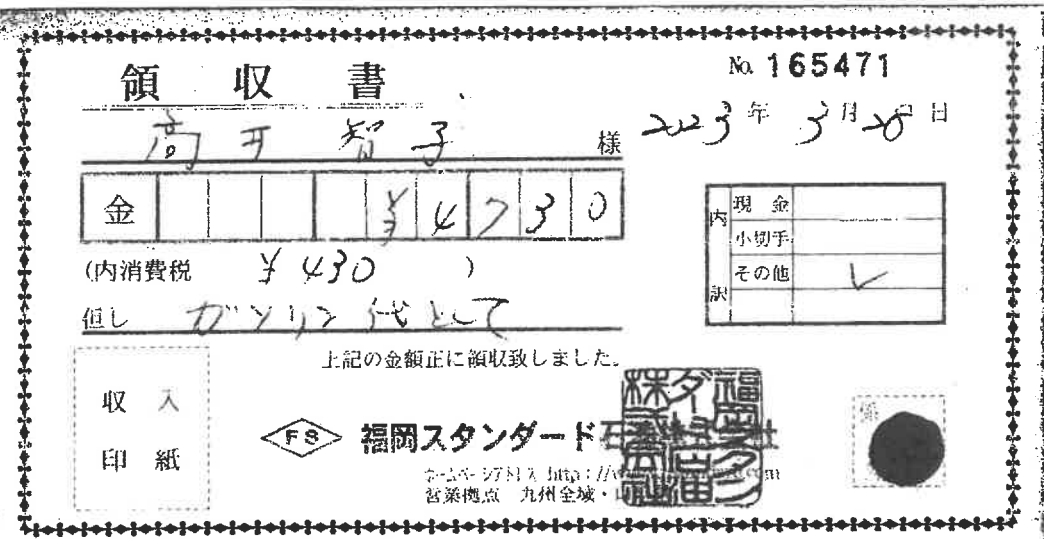 領収書
No. 165471
高井 智子 様
2023年 3月28日
金 ¥4730
(内消費税 ¥430 )
但し ガソリン代として
内訳
現金
小切手
その他 ✓
上記の金額正に領収致しました。
収入
印紙
係
FS 福岡スタンダード石油株式会社
ホームページアドレス http://
営業拠点 九州全域・